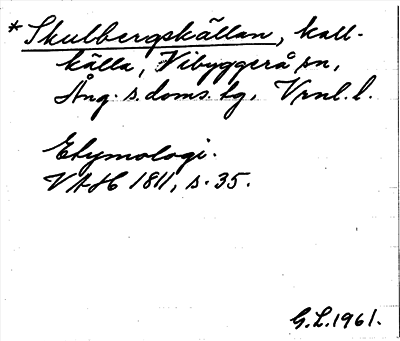 *Skulbergskällan, kall-
källa, Vibyggerå sn,
Ång. s. doms. tg. Vrnl. l.
Etymologi.
VAH 1811, s. 35.
G.L. 1961.